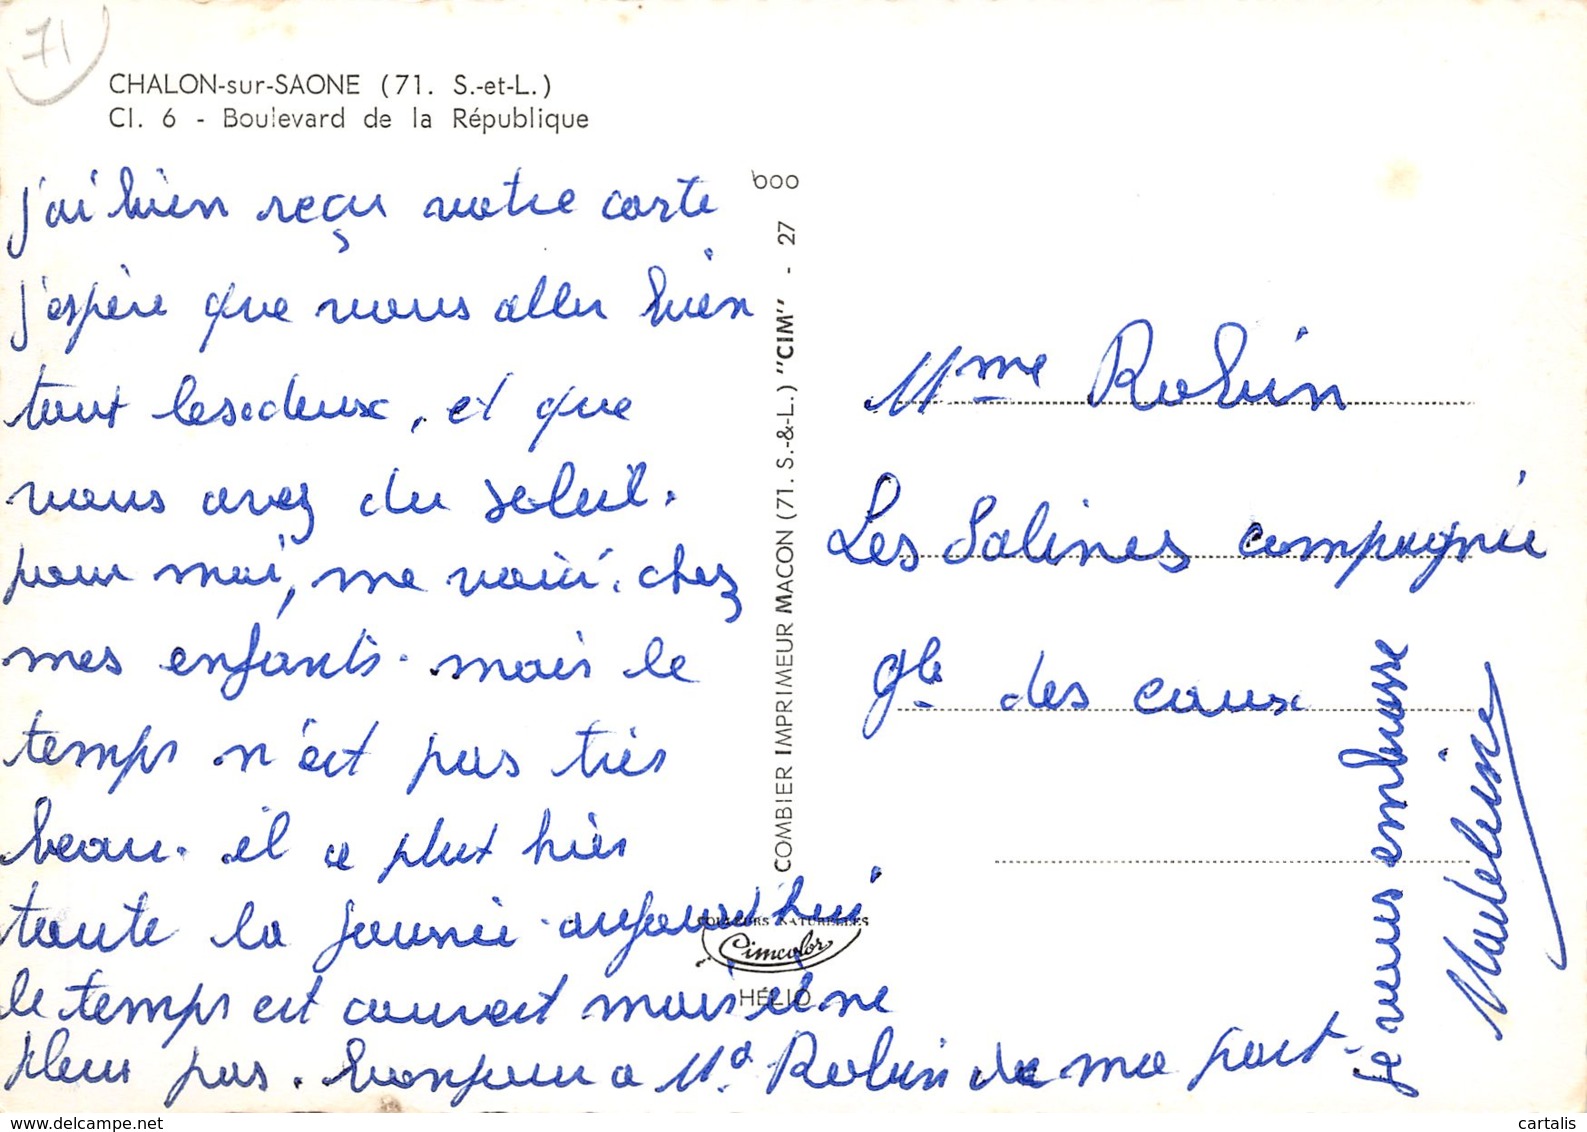 71
CHALON-sur-SAONE (71. S.-et-L.)
Cl. 6 - Boulevard de la République
j'ai bien reçu votre carte
j'espère que vous aller bien
tout les deux, et que
vous avez du soleil.
pour moi, me voici chez
mes enfants. mais le
temps n'est pas très
beau. il a plut hier
toute la journée aujourd'hui
le temps est couvert mais il ne
pleur pas. bonjour a Md Robin de ma part.
je vous embrasse
Madeleine
600
COMBIER IMPRIMEUR MACON (71. S.-&-L.) "CIM" - 27
COULEURS NATURELLES
Cimcolor
HÉLIO
Mme Robin
Les Salines compagnie
gle des eaux
www.delcampe.net
cartalis